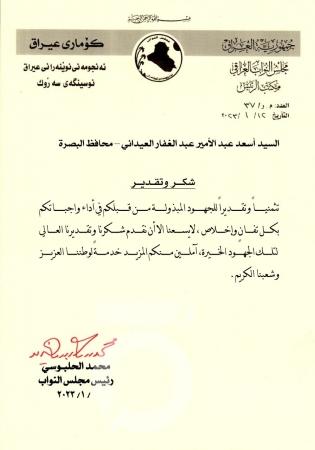 بسم الله الرحمن الرحيم
جمهورية العراق
مجلس النواب العراقي
مكتب الرئيس
كۆماری عیراق
ئه نجومه نی نوێنه رانی عیراق
نوسینگه ی سه رۆك
العدد: م.ر/ ٣٧
التاريخ ١٢/ ١ /٢٠٢٣
السيد أسعد عبد الأمير عبد الغفار العيداني – محافظ البصرة
شكر وتقدير
تثميناً وتقديراً للجهود المبذولة من قبلكم في أداء واجباتكم
بكل تفانٍ وإخلاص، لايسعنا الا أن نقدم شكرنا وتقديرنا العالي
لتلك الجهود الخيرة، آملين منكم المزيد خدمة لوطننا العزيز
وشعبنا الكريم.
محمد الحلبوسي
رئيس مجلس النواب
/ ١ /٢٠٢٣